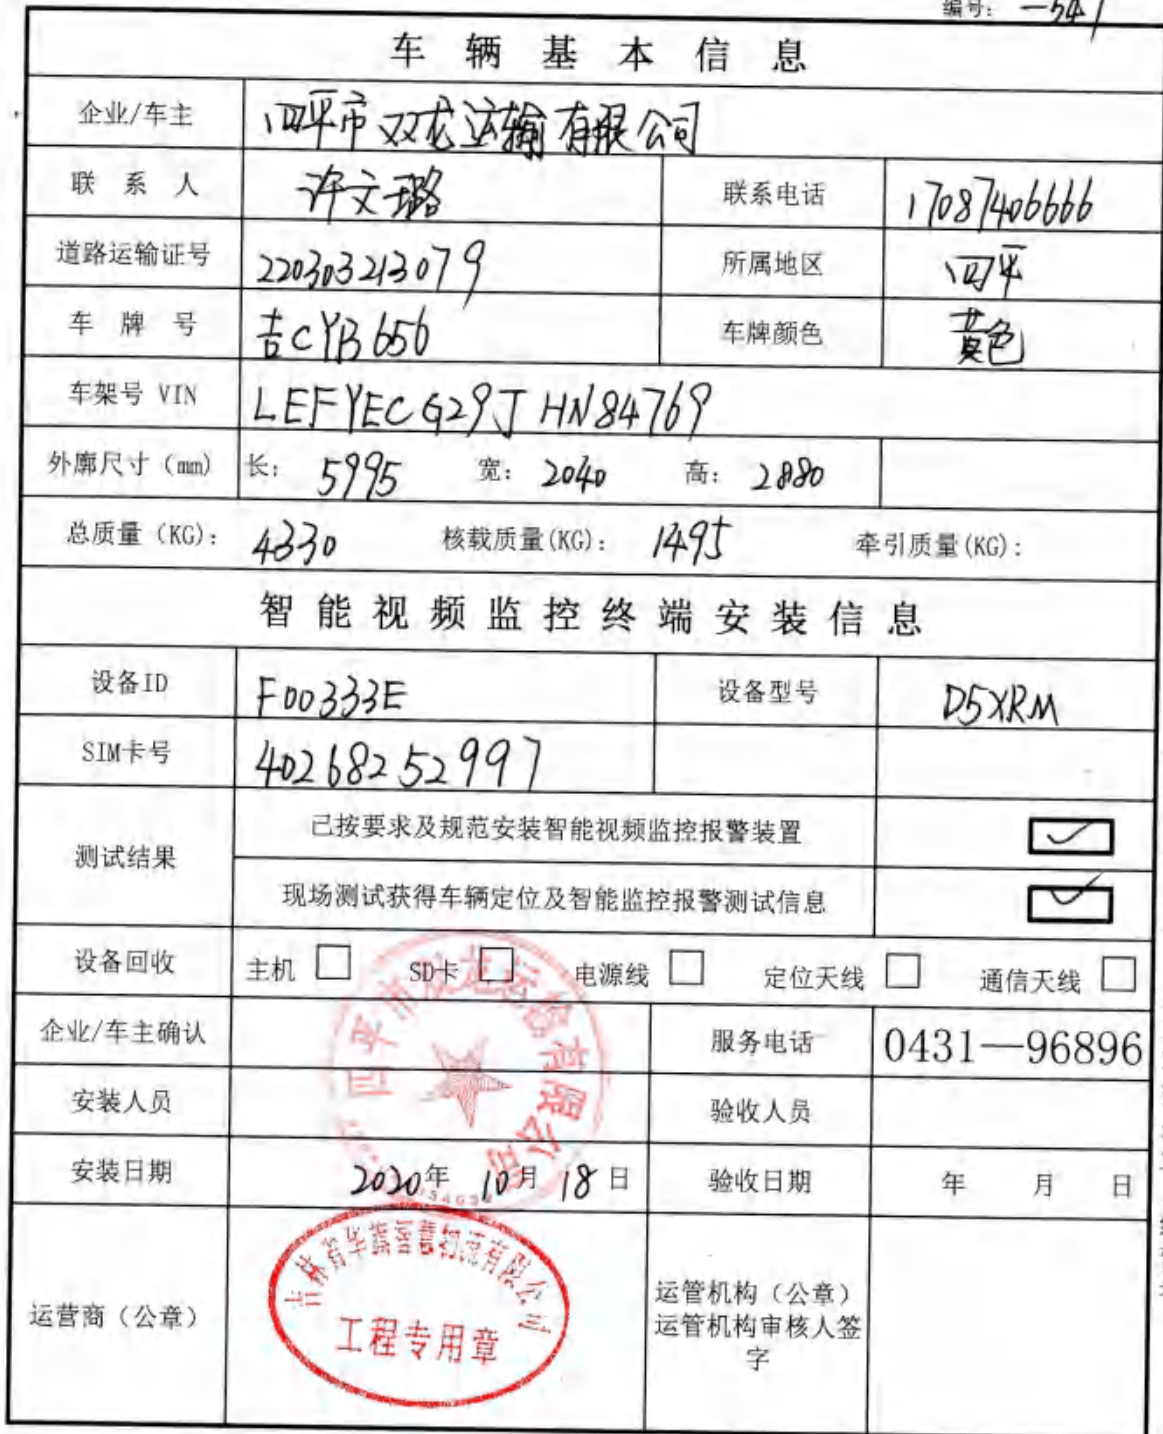 编号： —541
车辆基本信息
企业/车主 四平市双龙运输有限公司
联系人 许文璐 联系电话 17087406666
道路运输证号 220303213079 所属地区 四平
车牌号 吉CYB656 车牌颜色 黄色
车架号 VIN LEFYECG29JHN84769
外廓尺寸（mm） 长： 5995 宽： 2040 高： 2880
总质量（KG）： 4330 核载质量(KG)： 1495 牵引质量(KG)：
智能视频监控终端安装信息
设备ID F00333E 设备型号 D5XRM
SIM卡号 40268252997
测试结果 已按要求及规范安装智能视频监控报警装置
现场测试获得车辆定位及智能监控报警测试信息
设备回收 主机 SD卡 电源线 定位天线 通信天线
企业/车主确认 服务电话 0431—96896
四平市双龙运输有限公司
安装人员 验收人员
安装日期 2020年 10月 18日 验收日期 年 月 日
运营商（公章） 运管机构（公章）
运管机构审核人签
字
工程专用章